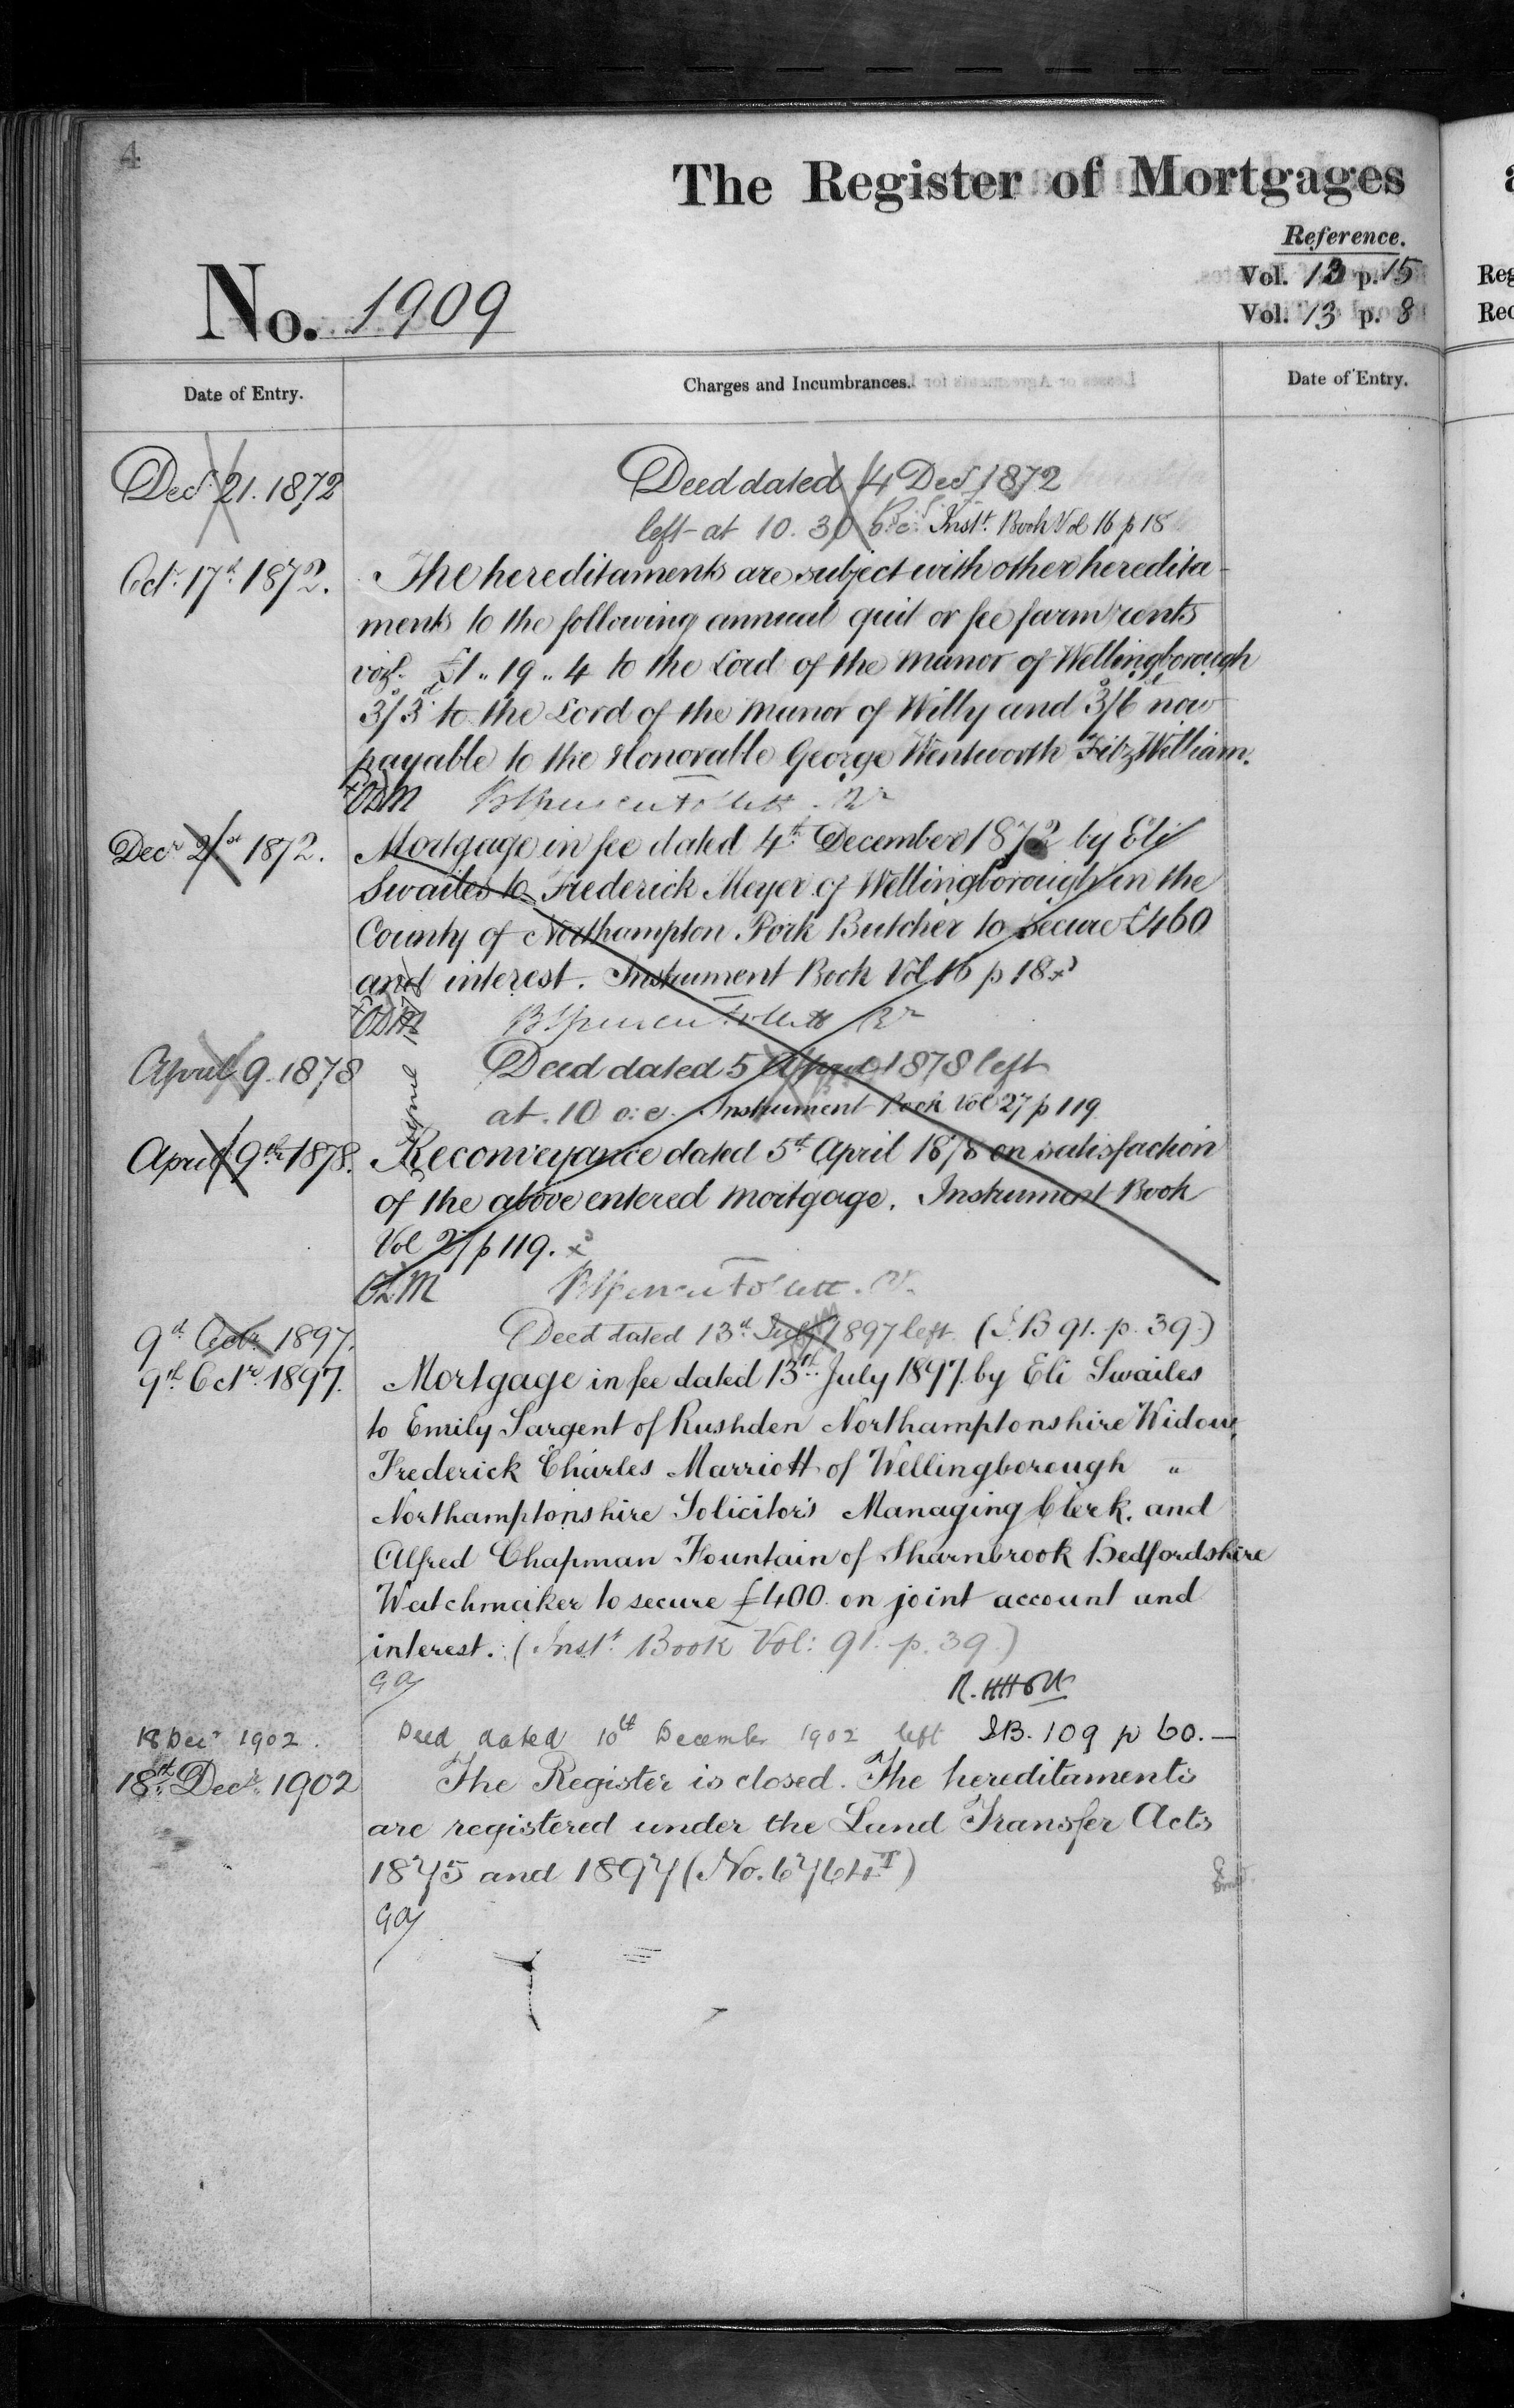 4
The Register of Mortgages
Reference.
Vol. 13 p. 15
Vol. 13 p. 8
No. 1909
Date of Entry.
Charges and Incumbrances.
Date of Entry.
Decr 21. 1872
Deed dated 4 Decr 1872
left at 10.30 o.c. Instt. Book Vol 16 p 18
Octr. 17th 1872.
The hereditaments are subject with other heredita-
ments to the following annual quit or fee farm rents
vizt. £1 .. 19 .. 4 to the Lord of the Manor of Wellingborough
3s/3d to the Lord of the Manor of Willy and 3s/6d now
payable to the Honorable George Wentworth FitzWilliam.
ODM BSpencer Follett. Rr
Decr 21st 1872.
Mortgage in fee dated 4th December 1872 by Eli
Swailes to Frederick Meyer of Wellingborough in the
County of Northampton Pork Butcher to secure £460
and interest. Instrument Book Vol 16 p 18.
ODM BSpencer Follett Rr
April 9. 1878
Deed dated 5 April 1878 left
at 10 o.c. Instrument Book Vol 27 p 119
April 9th 1878.
Reconveyance dated 5th April 1878 on satisfaction
of the above entered mortgage. Instrument Book
Vol 27 p 119.
ODM BSpencer Follett. Rr.
9th Octr. 1897.
Deed dated 13th July 1897 left (I.B 91. p. 39.)
9th Octr. 1897.
Mortgage in fee dated 13th July 1897. by Eli Swailes
to Emily Sargent of Rushden Northamptonshire Widow,
Frederick Charles Marriott of Wellingborough "
Northamptonshire Solicitor's Managing Clerk, and
Alfred Chapman Fountain of Sharnbrook Bedfordshire
Watchmaker to secure £400 on joint account and
interest. (Instt. Book Vol: 91. p. 39.)
18 Decr 1902.
Deed dated 10th December 1902 left I.B. 109 p 60. —
18th Decr. 1902
The Register is closed. The hereditaments
are registered under the Land Transfer Acts
1875 and 1897 (No. 6764